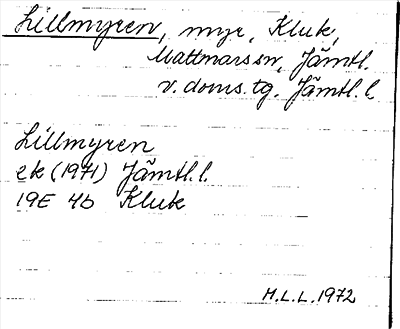 Lillmyren, myr, Kluk,
Mattmars sn, Jämtl.
v. doms.tg. Jämtl. l.
Lillmyren
ek (1971) Jämtl. l.
19E 4b Kluk
M.L.L. 1972